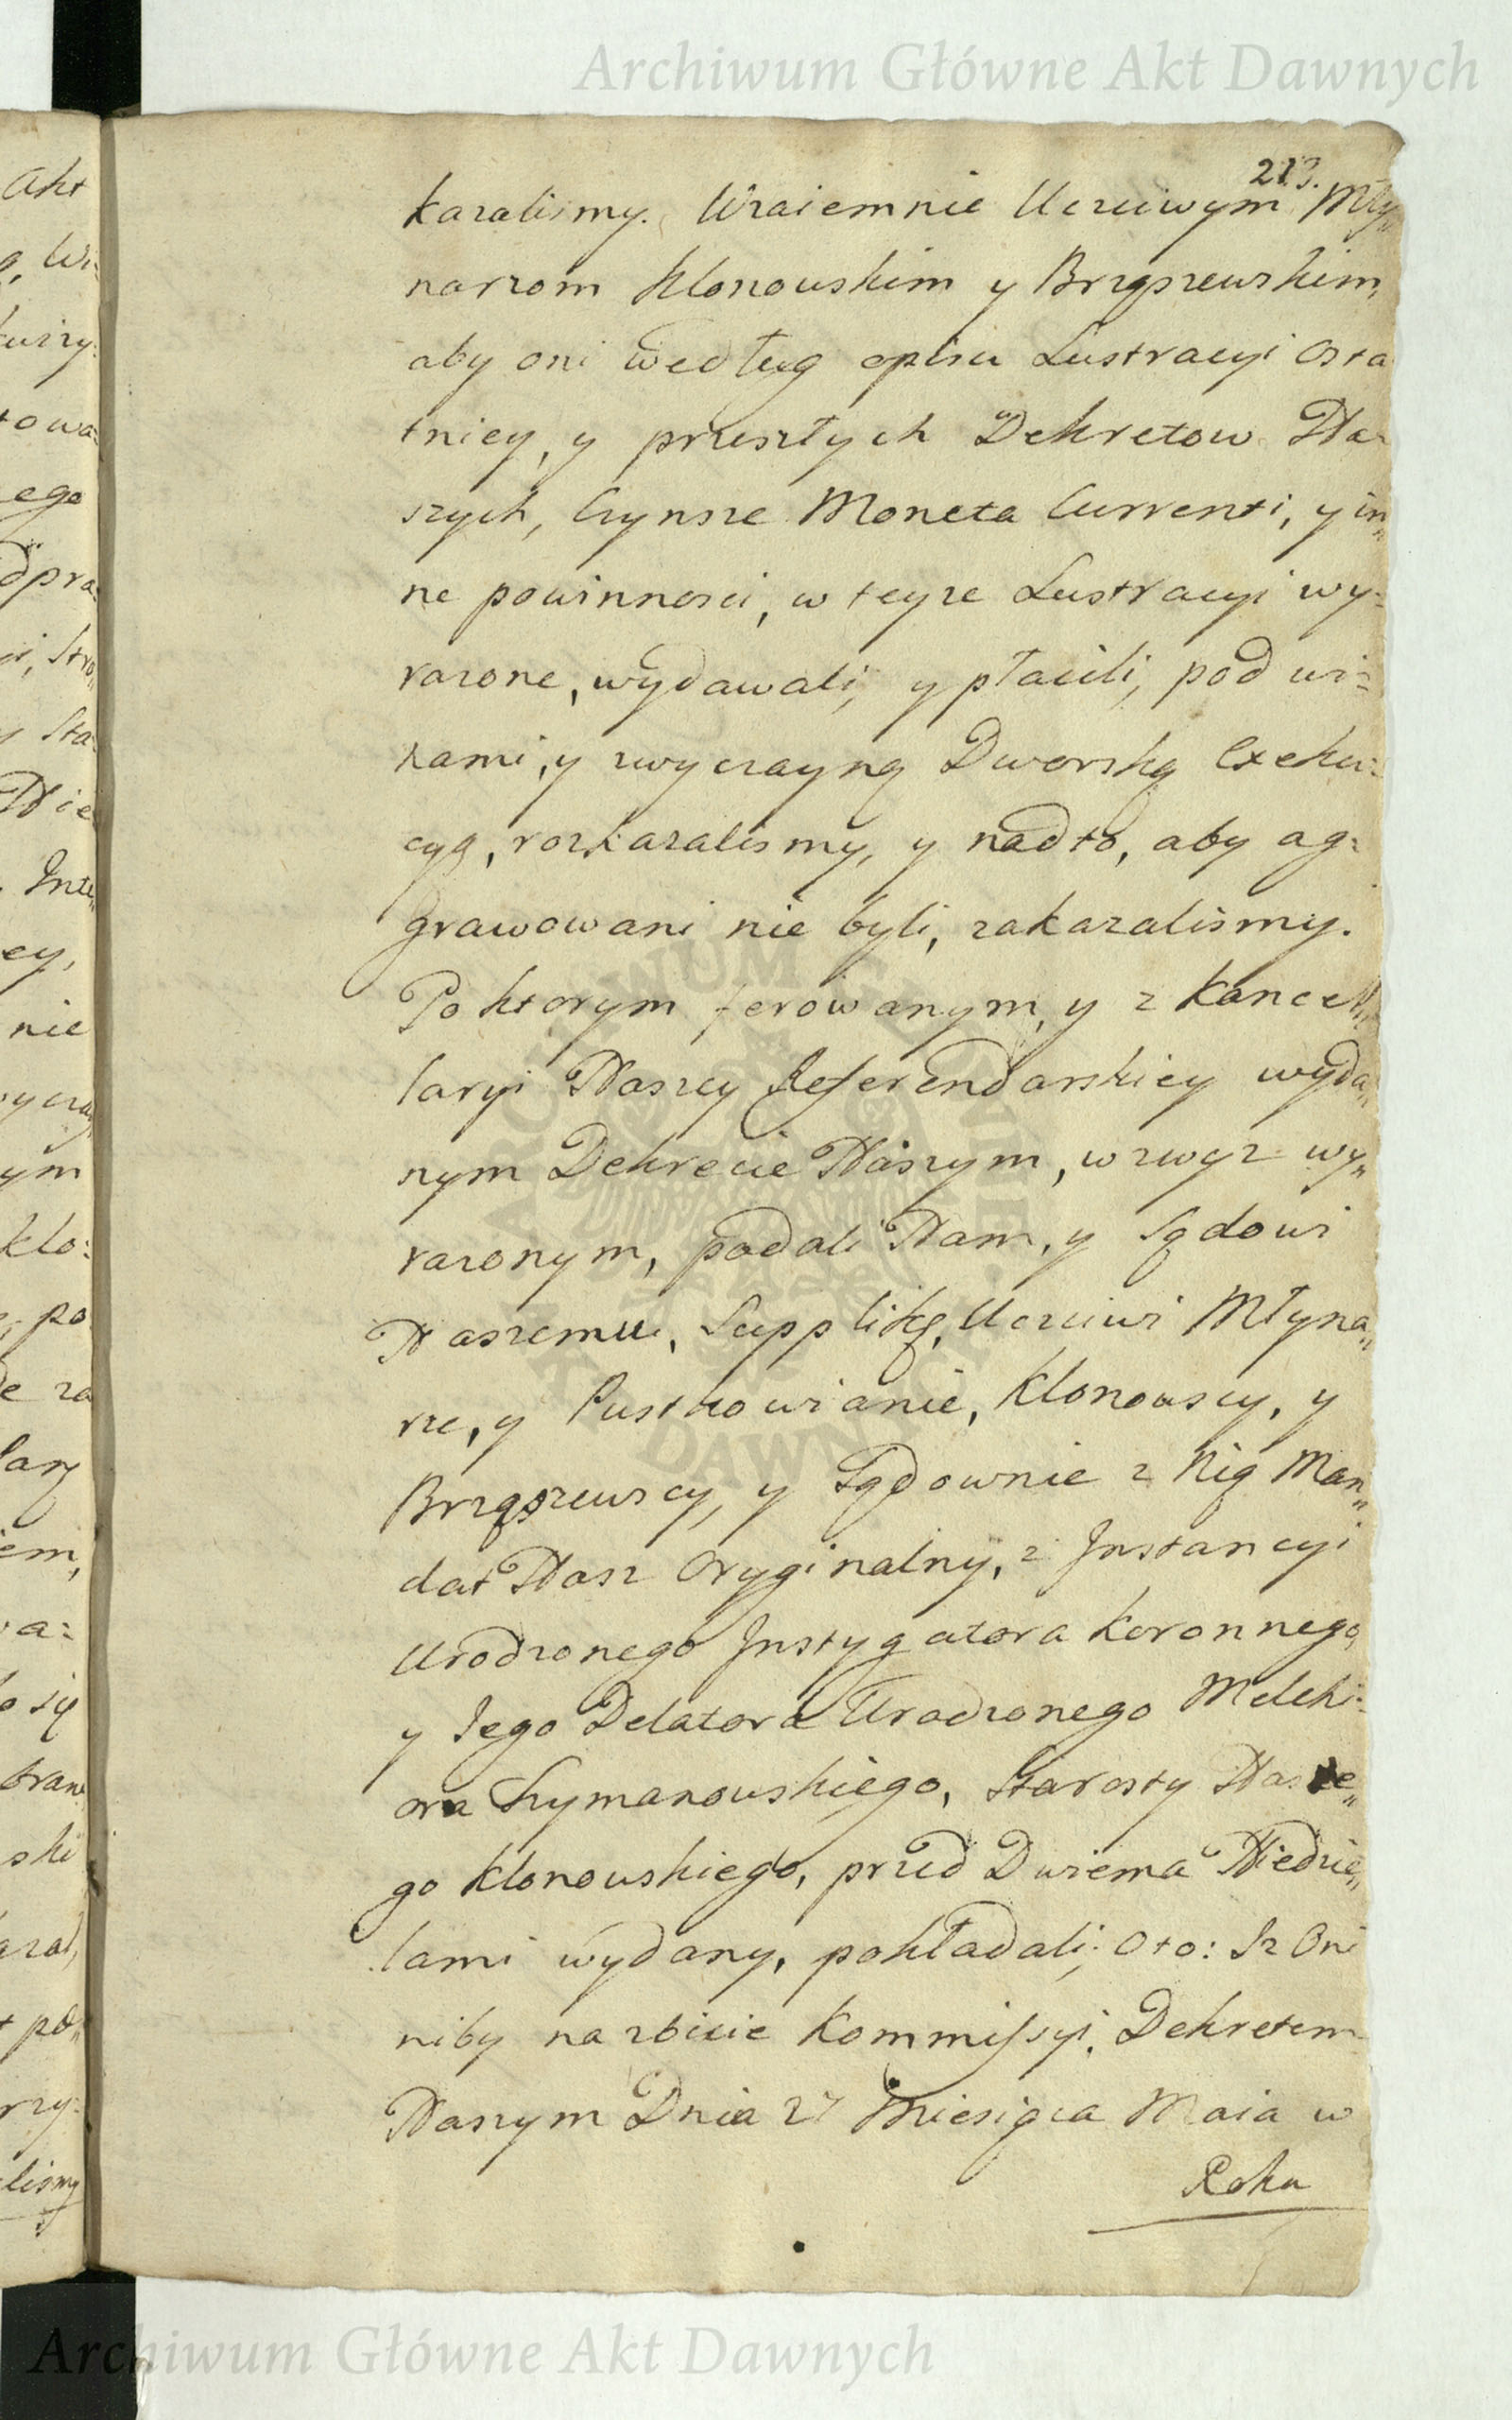 Archiwum Główne Akt Dawnych
213.
kazalismy. Wzaiemnie Uczciwym Mły„
narzom Klonowskim y Brząszewskim,
aby oni według opisu Lustracyi Osta
tniey, y przeszłych Dekretow Na„
szych, Czynsze Moneta Currenti, y in„
ne powinnosci, w teyze Lustracyi wy:
razone, wydawali, y płacili, pod wi:
nami, y zwyczayną Dworską Exeku:
cyą, rozkazalismy, y nadto, aby ag:
grawowani nie byli, zakazalismy.
Po ktorym ferowanym, y z Kancel„
laryi Naszey Referendarskiey wyda„
nym Dekrecie Naszym, wzwyz wy„
razonym, podali Nam, y Sądowi
Naszemu, Supplikę, Uczciwi Młyna„
rze, y Pustkowianie, Klonowscy, y
Brząszewscy, y Sądownie z Nią Man„
dat Nasz Oryginalny, z Jnstancyi
Urodzonego Jnstygatora Koronnego,
y Jego Delatora Urodzonego Melchi:
ora Szymanowskiego, Starosty Nasze„
go Klonowskiego, przed Dwiema Niedzie„
lami wydany, pokładali; Oto: Iz Oni
niby na zbicie Kommissyi, Dekretem
Naszym Dnia 27 Miesiąca Maia w
Roku
Akt
Wi:
towa:
ego
dpra:
Sta:
Nie
Inte„
ey,
nie
ym
klo:
po
za
iem,
a:
się
ski
lismy
ARCHIWUM GŁÓWNE AKT DAWNYCH
Archiwum Główne Akt Dawnych